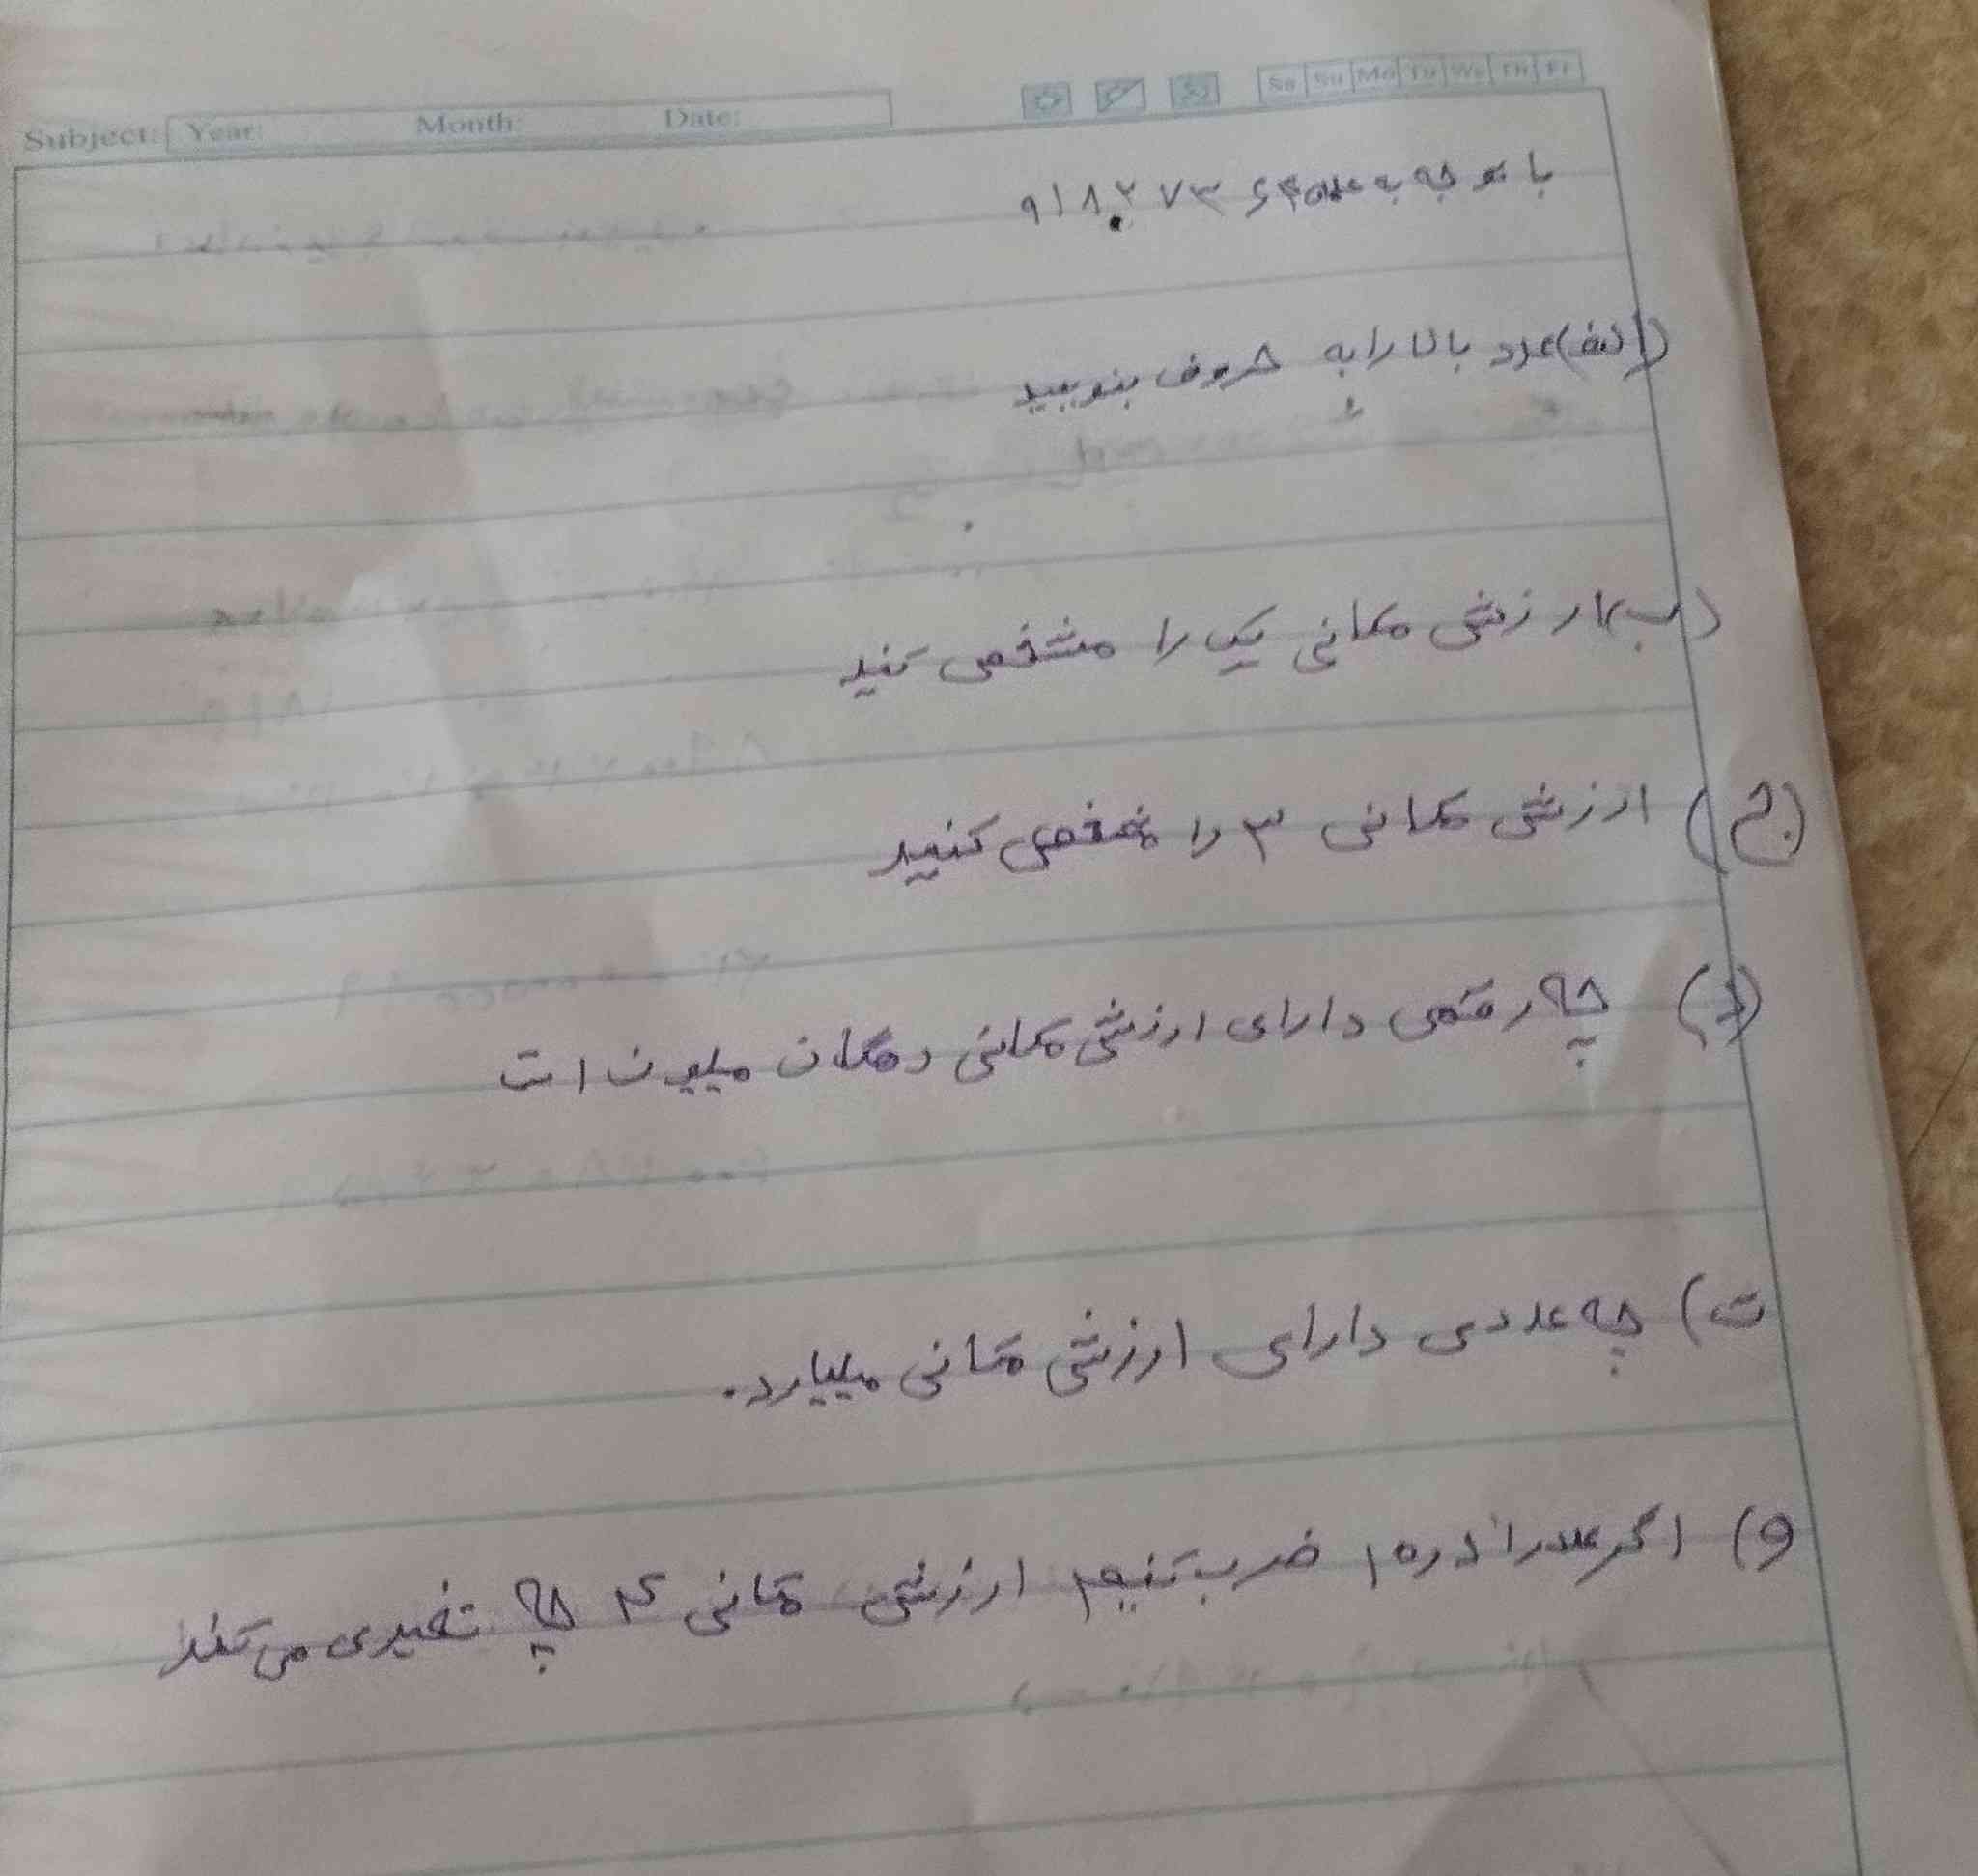 Subject: Year: Month: Date: Sa Su Mo Tu We Th Fr
با توجه به عدد ۹۱۸۲۷۳۶۴
الف) عدد بالا را به حروف بنویسید
ب) ارزش مکانی یک را مشخص کنید
ج) ارزش مکانی ۳ را مشخص کنید
د) چه رقمی دارای ارزش مکانی دهگان میلیون است
ت) چه عددی دارای ارزش مکانی میلیارد.
و) اگر عدد را در ۱۰ ضرب کنیم ارزش مکانی ۴ چه تغییری می کند